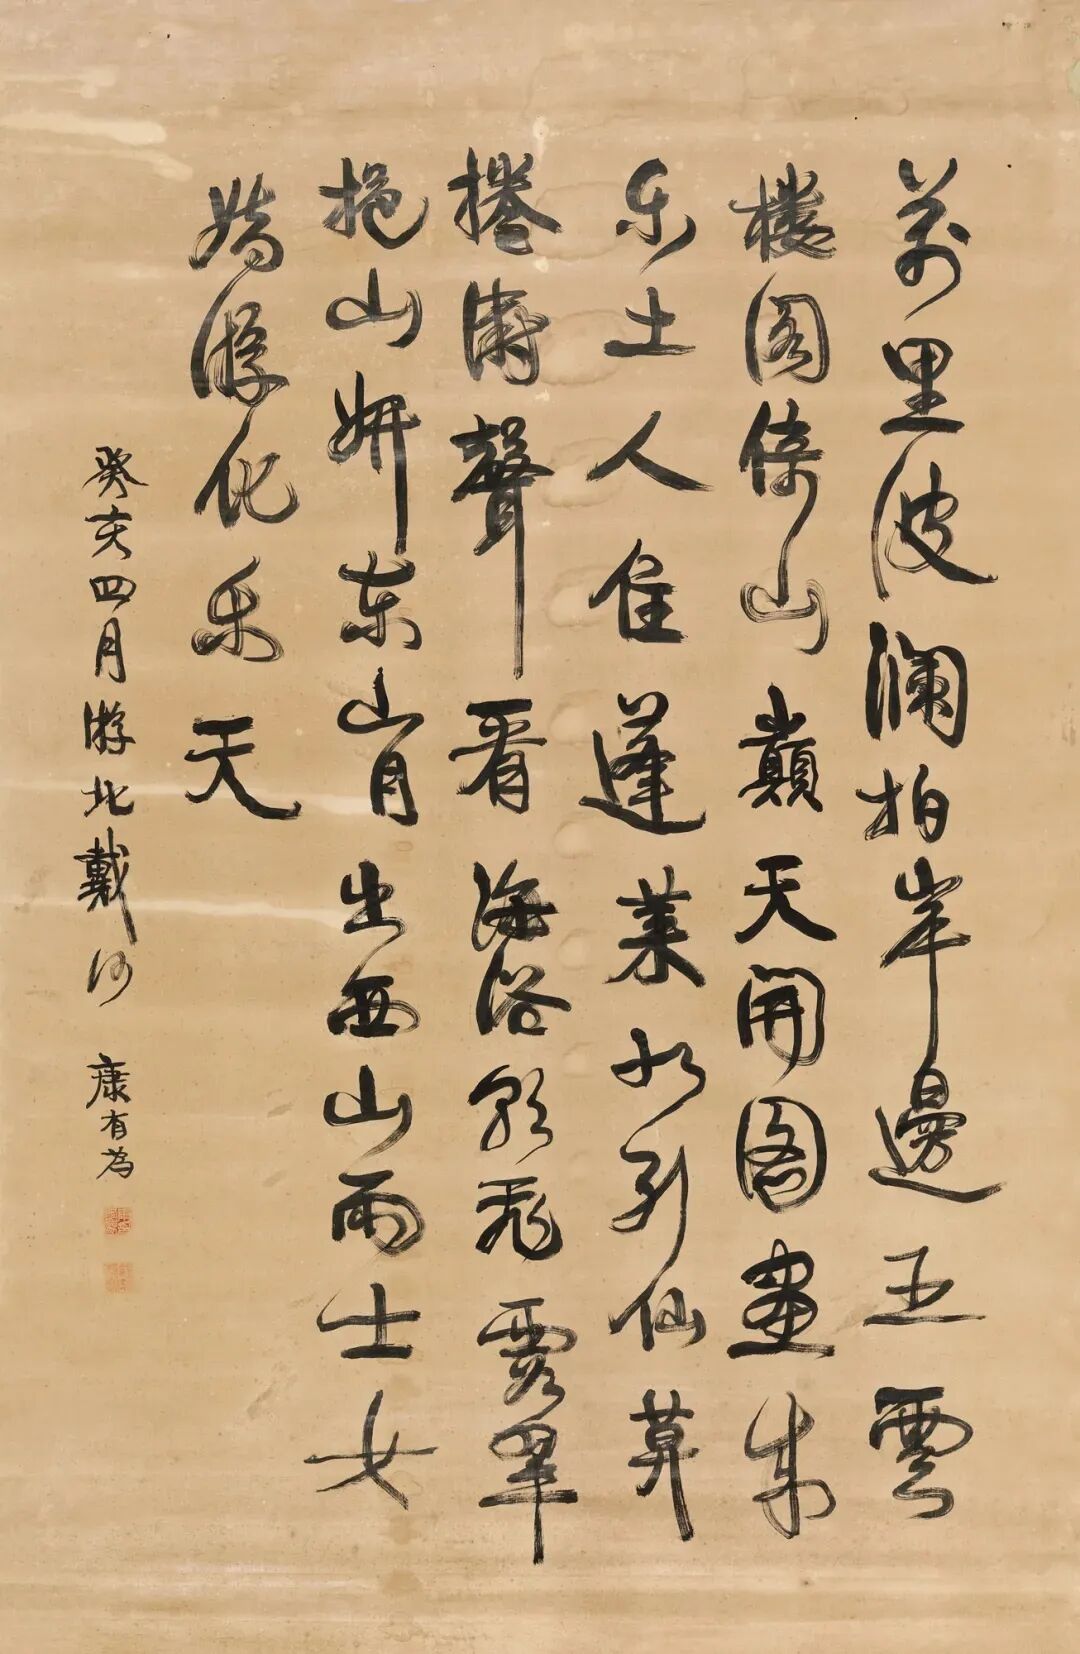 萬里波瀾拍岸邊五雲
樓閣倚山巔天開圖畫成
樂土人住蓬萊似列仙莫
捲濤聲看海浴朝飛霞翠
挹山妍東山月出西山雨士女
嬉游化樂天
癸亥四月游北戴河 康有為